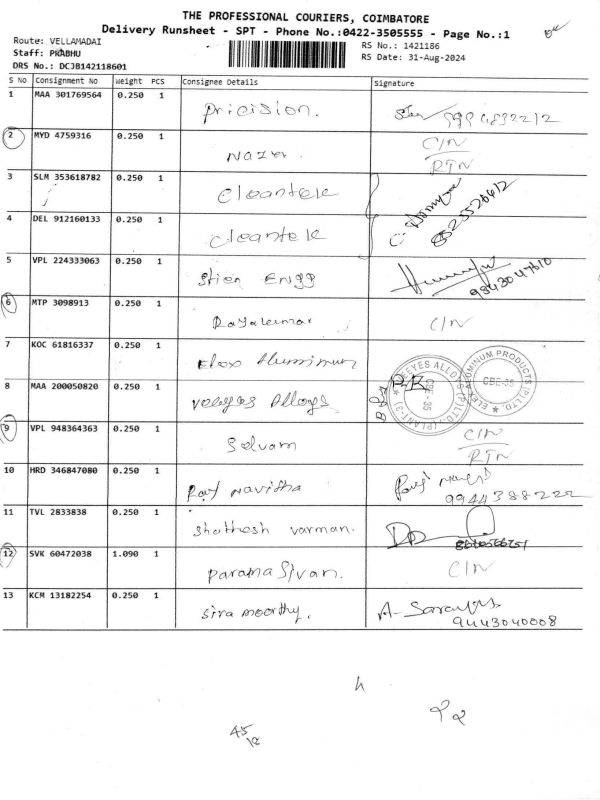 THE PROFESSIONAL COURIERS, COIMBATORE
Delivery Runsheet - SPT - Phone No.:0422-3505555 - Page No.:1
Route: VELLAMADAI
RS No.: 1421186
Staff: PRABHU
RS Date: 31-Aug-2024
DRS No.: DCJB142118601
S No Consignment No Weight PCS Consignee Details Signature
1 MAA 301769564 0.250 1 Pricision.
2 MYD 4759316 0.250 1 Nazer C/N
RTN
3 SLM 353618782 0.250 1 Cleantek
4 DEL 912160133 0.250 1 Cleantek
5 VPL 224333063 0.250 1 Stien Engg 9843047610
6 MTP 3098913 0.250 1 Rajakumar C/N
7 KOC 61816337 0.250 1 Elex Aluminium
ELEX ALUMINUM PRODUCTS (P) LTD. CBE-35
8 MAA 200050820 0.250 1 Veleyes Alloys
CBE-35
9 VPL 948364363 0.250 1 Selvam C/N
RTN
10 HRD 346847080 0.250 1 Ravi Navitha
9944388222
11 TVL 2833838 0.250 1 Shathesh varman.
12 SVK 60472038 1.090 1 Parama Sivan. C/N
13 KCM 13182254 0.250 1 Siva moorthy.
9443040008